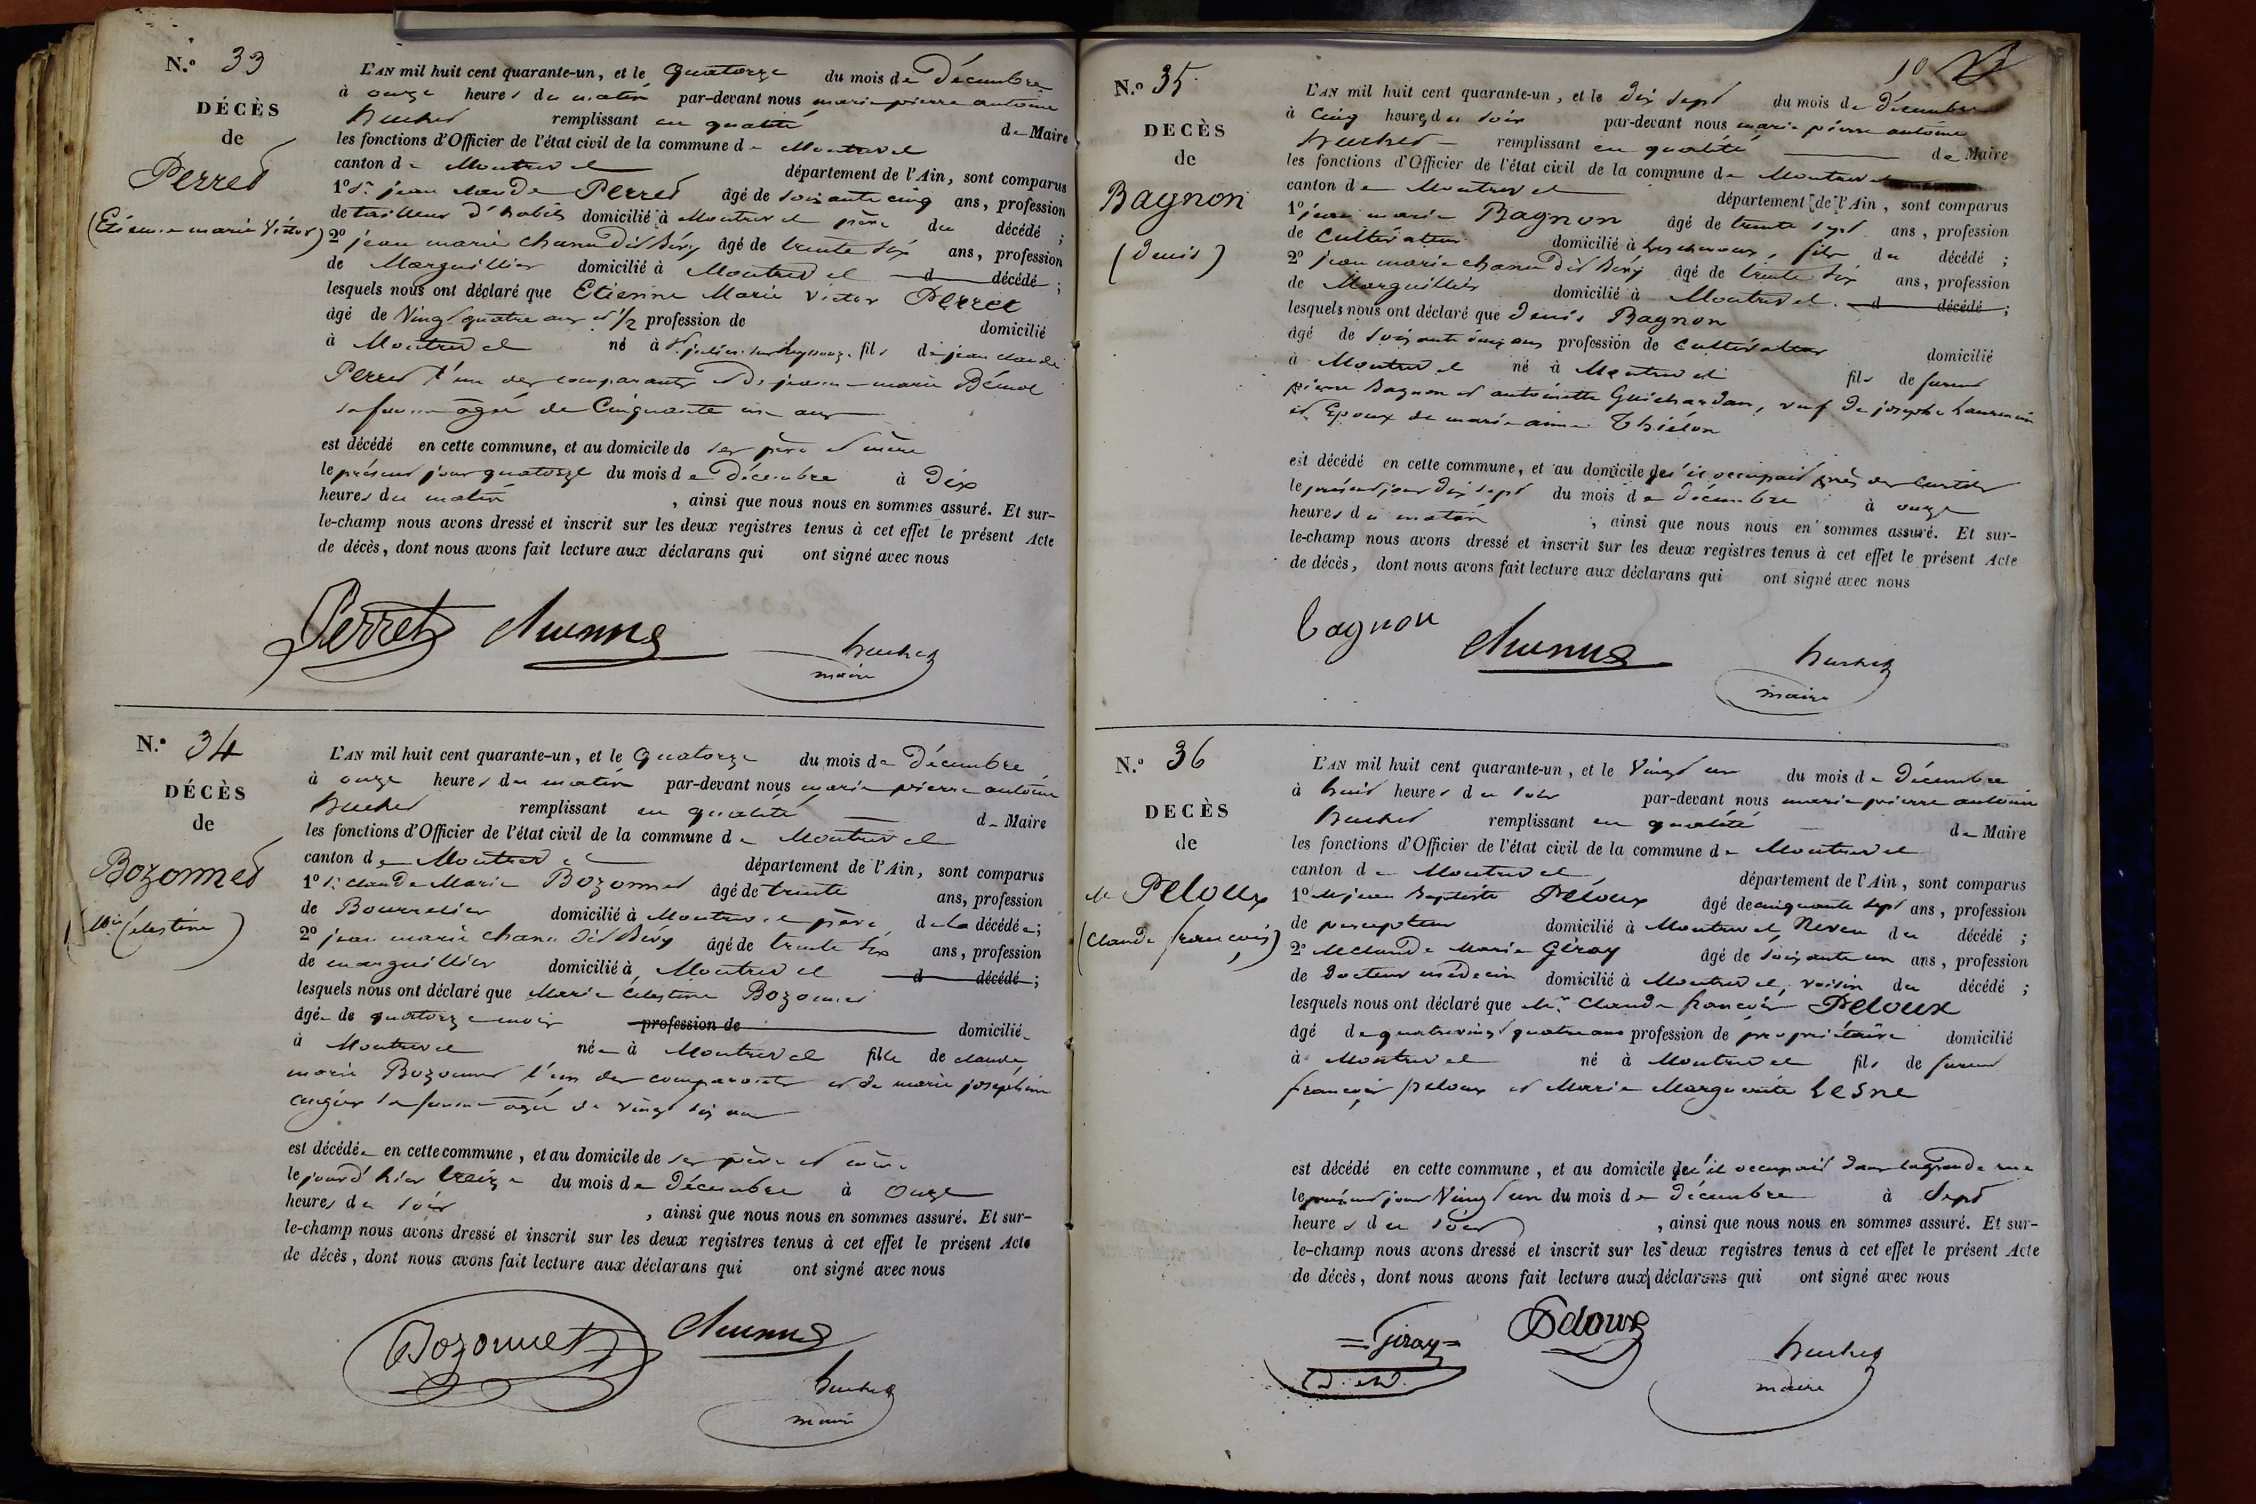 N.o 33
DÉCÈS
de
Perret
(Etienne marie Victor)
L'AN mil huit cent quarante-un, et le quatorze du mois de Décembre
à onze heures du matin par-devant nous marie pierre antoine
remplissant en qualité de Maire
les fonctions d'Officier de l'état civil de la commune de Montrevel
canton de Montrevel département de l'Ain, sont comparus
1º Sr jean claude Perret âgé de soixante cinq ans, profession
de tailleur d'habits domicilié à Montrevel père du décédé ;
2º jean marie chanu dit Bévy âgé de trente six ans, profession
de Marguillier domicilié à Montrevel d décédé ;
lesquels nous ont déclaré que Etienne Marie Victor Perret
âgé de Vingt quatre ans et 1/2 profession de domicilié
à Montrevel né à St julien sur Reyssouze fils de jean claude
Perret l'un des comparants et de jeanne marie
sa femme âgée de Cinquante un ans
est décédé en cette commune, et au domicile de ses père et mère
le présent jour quatorze du mois de Décembre à Dix
heures du matin , ainsi que nous nous en sommes assuré. Et sur-
le-champ nous avons dressé et inscrit sur les deux registres tenus à cet effet le présent Acte
de décès, dont nous avons fait lecture aux déclarans qui ont signé avec nous
Perret
maire
N.o 34
DÉCÈS
de
Bozonnet
(Mie Célestine)
L'AN mil huit cent quarante-un, et le quatorze du mois de Décembre
à onze heures du matin par-devant nous marie pierre antoine
remplissant en qualité de Maire
les fonctions d'Officier de l'état civil de la commune de Montrevel
canton de Montrevel département de l'Ain, sont comparus
1º Sr claude Marie Bozonnet âgé de trente ans, profession
de Bourrelier domicilié à Montrevel père de la décédée ;
2º jean marie chanu dit Bévy âgé de trente six ans, profession
de marguillier domicilié à Montrevel d décédé ;
lesquels nous ont déclaré que Marie Célestine Bozonnet
âgée de quatorze mois profession de domiciliée
à Montrevel née à Montrevel fille de claude
marie Bozonnet l'un des comparants et de marie joséphine
sa femme âgée de vingt six ans
est décédée en cette commune, et au domicile de ses père et mère
le jour d'hier treize du mois de Décembre à onze
heures du soir , ainsi que nous nous en sommes assuré. Et sur-
le-champ nous avons dressé et inscrit sur les deux registres tenus à cet effet le présent Acte
de décès, dont nous avons fait lecture aux déclarans qui ont signé avec nous
Bozonnet
maire
10
N.o 35
DECÈS
de
Bagnon
(Denis)
L'AN mil huit cent quarante-un, et le dix sept du mois de décembre
à Cinq heures du soir par-devant nous marie pierre antoine
remplissant en qualité de Maire
les fonctions d'Officier de l'état civil de la commune de Montrevel
canton de Montrevel département de l'Ain, sont comparus
1º jean marie Bagnon âgé de trente sept ans, profession
de Cultivateur domicilié à fils du décédé ;
2º jean marie chanu dit Bévy âgé de trente six ans, profession
de Marguillier domicilié à Montrevel d décédé ;
lesquels nous ont déclaré que Denis Bagnon
âgé de soixante ans profession de Cultivateur domicilié
à Montrevel né à Montrevel fils de furent
pierre Bagnon et antoinette Guichardan, veuf de josephe
et Epoux de marie aimée Thiélon
est décédé en cette commune, et au domicile qu'il occupait près des
le présent jour dix sept du mois de décembre à onze
heures du matin , ainsi que nous nous en sommes assuré. Et sur-
le-champ nous avons dressé et inscrit sur les deux registres tenus à cet effet le présent Acte
de décès, dont nous avons fait lecture aux déclarans qui ont signé avec nous
bagnon
maire
N.o 36
DECÈS
de
Mr Peloux
(Claude françois)
L'AN mil huit cent quarante-un, et le Vingt un du mois de décembre
à huit heures du soir par-devant nous marie pierre antoine
remplissant en qualité de Maire
les fonctions d'Officier de l'état civil de la commune de Montrevel
canton de Montrevel département de l'Ain, sont comparus
1º Mr jean Baptiste Péloux âgé de cinquante sept ans, profession
de percepteur domicilié à Montrevel, Neveu du décédé ;
2º Mr claude Marie Giroy âgé de soixante un ans, profession
de Docteur médecin domicilié à Montrevel, voisin du décédé ;
lesquels nous ont déclaré que Mr claude françois Peloux
âgé de quatre vingt quatre ans profession de propriétaire domicilié
à Montrevel né à Montrevel fils de furent
françois peloux et Marie Marguerite Lesne
est décédé en cette commune, et au domicile qu'il occupait dans la grande rue
le présent jour Vingt un du mois de décembre à Sept
heures du soir , ainsi que nous nous en sommes assuré. Et sur-
le-champ nous avons dressé et inscrit sur les deux registres tenus à cet effet le présent Acte
de décès, dont nous avons fait lecture aux déclarans qui ont signé avec nous
=Giroy=
D.M.
Peloux
maire